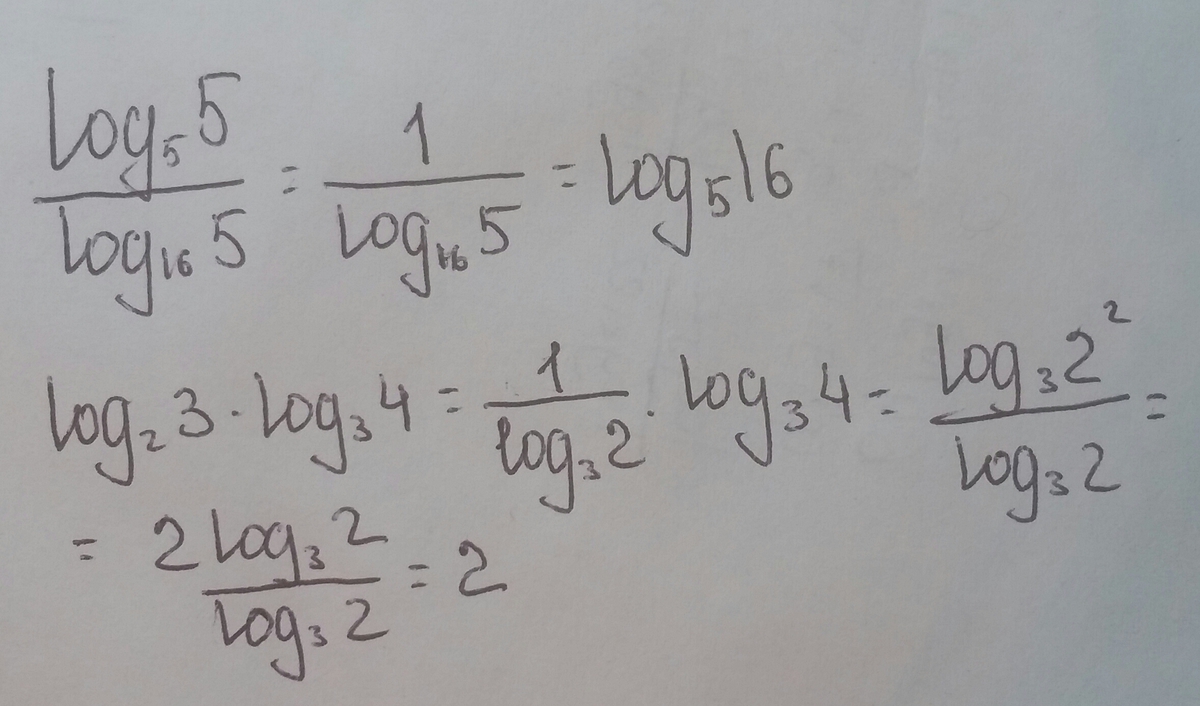 log₅5/log₁₆5 = 1/log₁₆5 = log₅16
log₂3 · log₃4 = 1/log₃2 · log₃4 = log₃2²/log₃2 =
= 2log₃2/log₃2 = 2